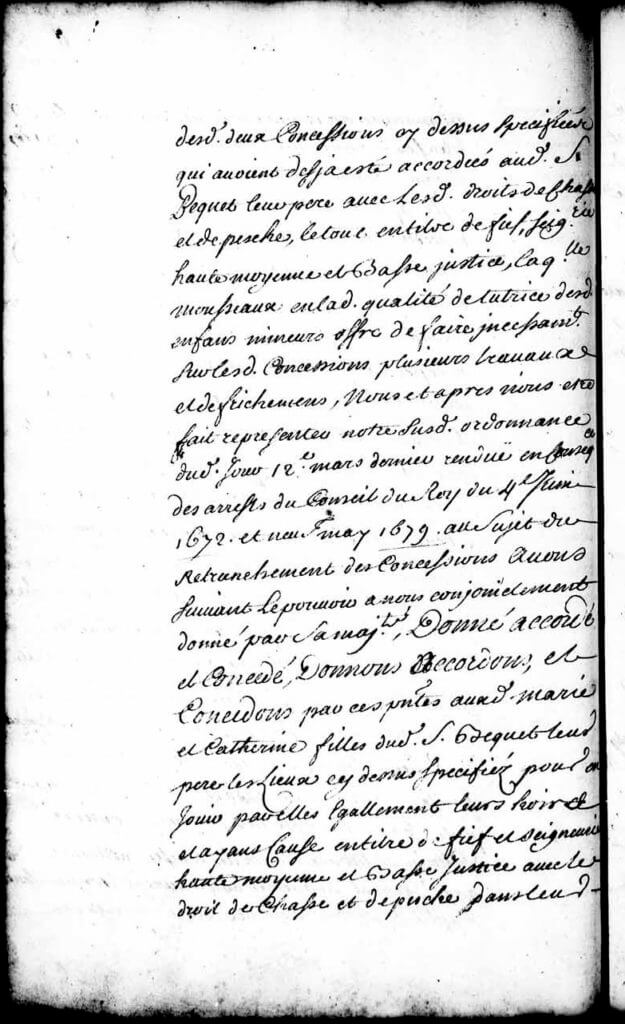 desd. deux Concessions cy dessus specifiées
qui avoient desja esté accordées aud. S.
Bequet leur pere avec lesd. droits de Chasse
et de pesche, le tout en titre de fief, seig.rie
haute moyenne et Basse justice, laq.lle
mousseaux en lad. qualité de tutrice desd.
enfans mineurs offre de faire incessam.t
sur lesd. Concessions plusieurs travaux
et defrichemens, Nous et apres nous estre
fait representer notre susd. ordonnance
dud. jour 12.e mars dernier rendüe en conseq.ce
des arrests du Conseil du Roy du 4.e Juin
1672. et neuf may 1679. au sujet du
Retranchement des Concessions Avons
suivant le pouvoir a nous conjoinctement
donné par sa maj.té, Donné accordé
et Concedé, Donnons Accordons, et
Concedons par ces pntes auxd. marie
et Catherine filles dud. S. Bequet leur
pere les Lieux cy dessus specifiéz pour en
Jouir par elles Egallement leurs hoirs
et ayans Cause en titre de fief et seigneurie
haute moyenne et Basse Justice avec le
droit de Chasse et de pesche dans leur